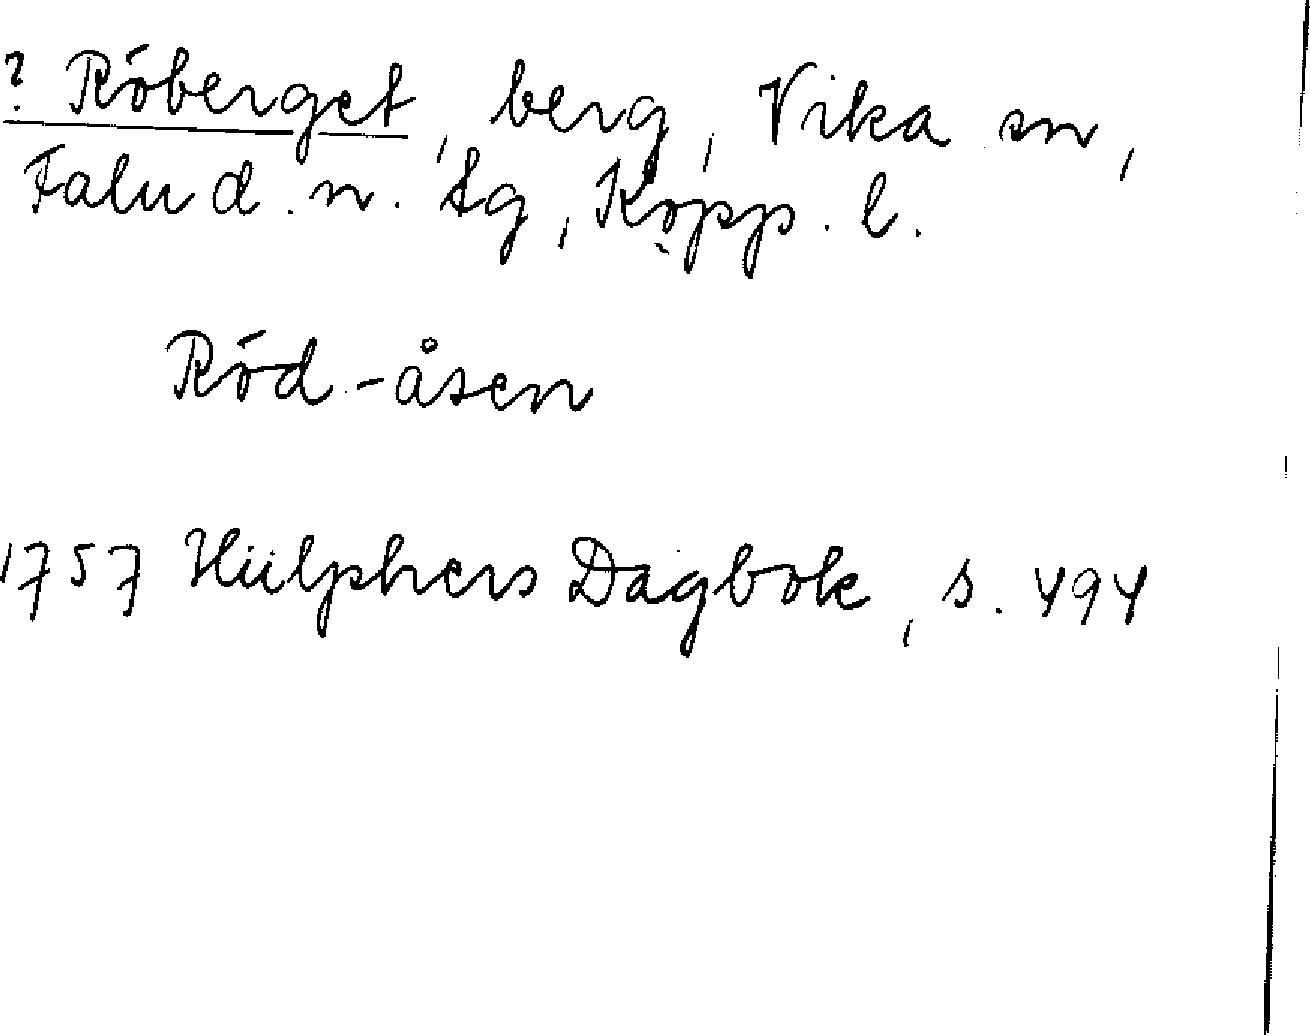 ? Röberget, berg, Vika sn,
Falu d. n. tg, Kopp. l.
Röd-åsen
1757 Hülphers Dagbok, s. 494